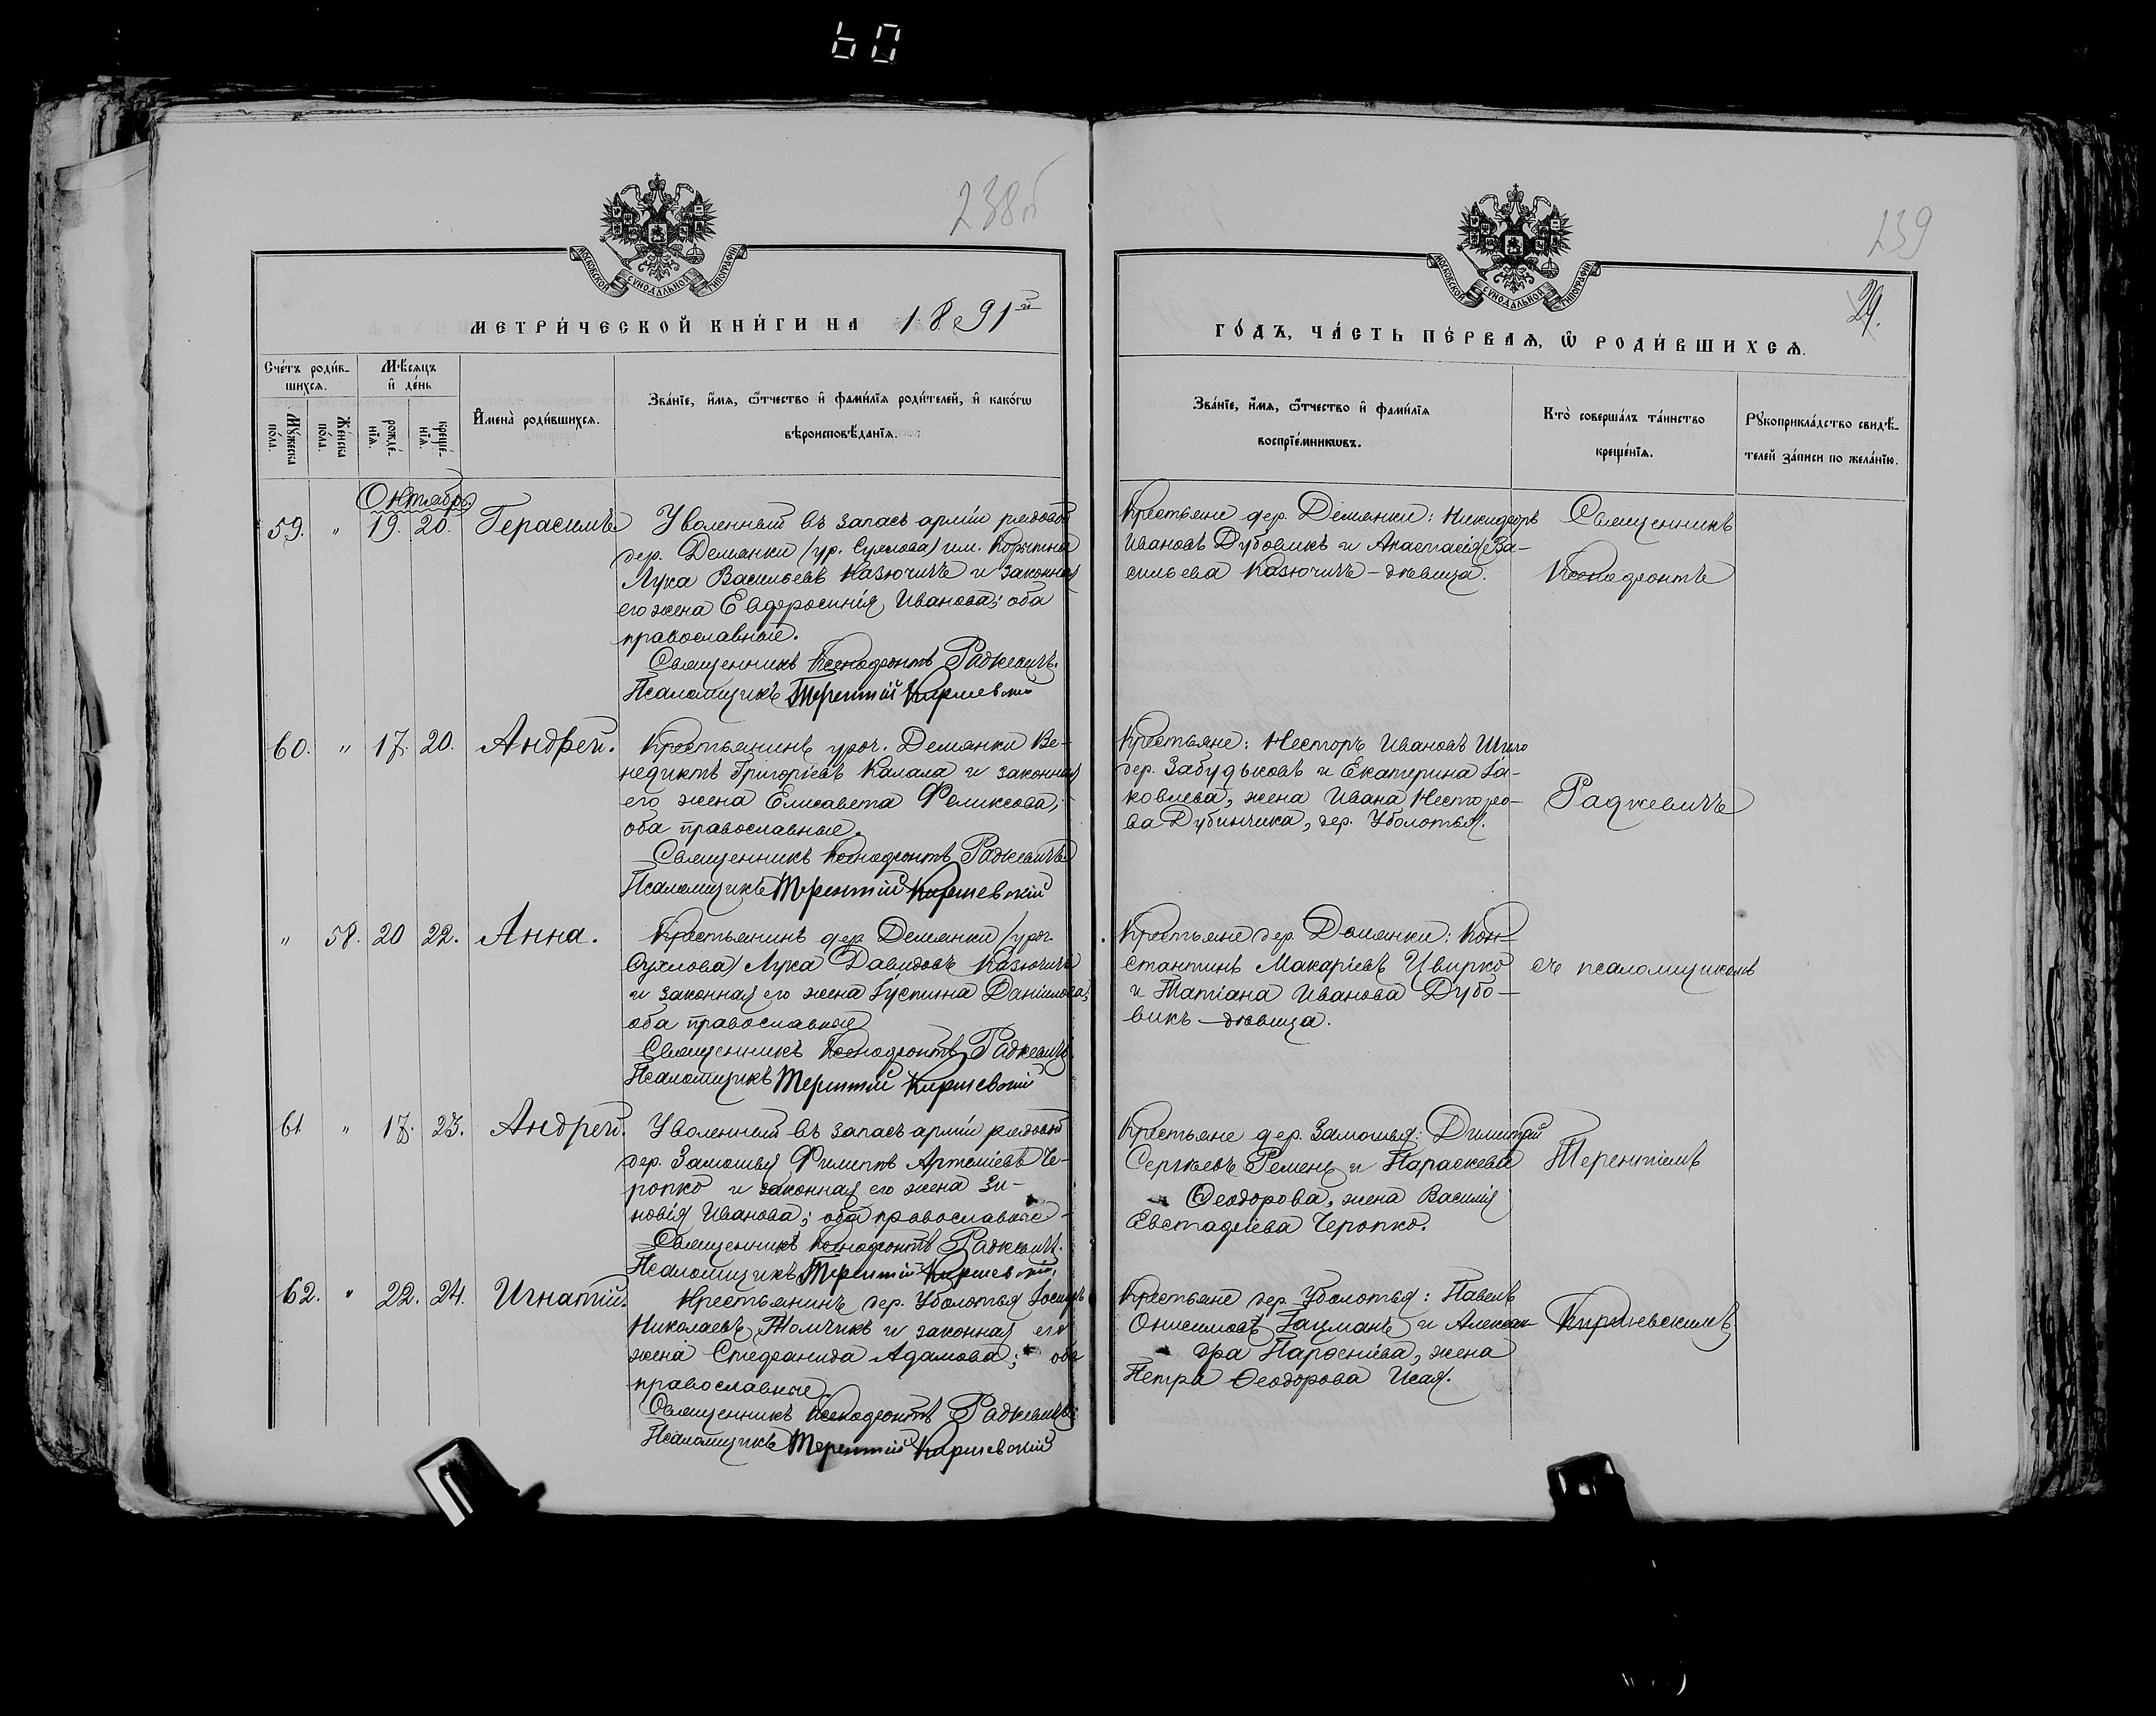 60
238б
МОСКОВСКОЙ СѴНОДАЛЬНОЙ ТИПОГРАФІИ
МЕТРИ́ЧЕСКОЙ КНИ́ГИ НА 1891й
Сче́тъ роди́в-
шихся.
Мѣ́сяцъ
и҆ де́нь
Му́жеска
по́ла.
Же́нска
по́ла.
рожде́-
нїя.
креще́-
нїя.
И҆мена̀ роди́вшихся.
Зва́нїе, и҆́мя, ѻ҆́тчество и҆ фами́лїя роди́телей, и҆ како́гѡ
вѣроисповѣ́данїя.
Октябрь
59. " 19. 20. Герасимъ
Уволенный въ запасъ арміи рядовой
дер. Демянки (ур. Суялова) им. Корытна
Лука Васильевъ Казючичъ и законная
его жена Евфросинія Иванова; оба
православные.
Священникъ Ксенофонтъ Радкевичъ.
Псаломщикъ Терентій Киршевскій
60. " 17. 20. Андрей.
Крестьянинъ уроч. Демянки Ве-
недиктъ Григоріевъ Калала и законная
его жена Елисавета Феликсова;
оба православные.
Священникъ Ксенофонтъ Радкевичъ
Псаломщикъ Терентій Киршевскій
" 58. 20 22. Анна.
Крестьянинъ дер. Демянки (уроч.
Суялова) Лука Давидовъ Казючичъ
и законная его жена Іустина Даніилова;
оба православные
Священникъ Ксенофонтъ Радкевичъ.
Псаломщикъ Терентій Киршевскій
61 " 17. 23. Андрей.
Уволенный въ запасъ арміи рядовой
дер. Замошья Филиппъ Артеміевъ Че-
ропко и законная его жена Зи-
новія Иванова; оба православные
Священникъ Ксенофонтъ Радкевичъ.
Псаломщикъ Терентій Киршевскій
62. " 22. 24. Игнатій.
Крестьянинъ дер. Уболотья Іосифъ
Николаевъ Томчикъ и законная его
жена Стефанида Адамова; оба
православные.
Священникъ Ксенофонтъ Радкевичъ
Псаломщикъ Терентій Киршевскій
239
29.
МОСКОВСКОЙ СѴНОДАЛЬНОЙ ТИПОГРАФІИ
ГО́ДЪ, ЧА́СТЬ ПЕ́РВАЯ, Ѡ҆ РОДИ́ВШИХСЯ.
Зва́нїе, и҆́мя, ѻ҆́тчество и҆ фами́лїя
воспрїе́мникѡвъ.
Кто̀ соверша́лъ та́инство
креще́нїя.
Рꙋкоприкла́дство свидѣ́-
телей за́писи по жела́нїю.
Крестьяне дер. Демянки: Никифоръ
Ивановъ Дубовикъ и Анастасія Ва-
сильева Казючичъ - дѣвица.
Священникъ
Ксенофонтъ
Крестьяне: Несторъ Ивановъ
дер. Забудьковъ и Екатерина Іа-
ковлева, жена Ивана Несторо-
ва Дубинчика, дер. Уболотья.
Радкевичъ
Крестьяне дер. Демянки: Кон-
стантинъ Макаріевъ Цвирко
и Татіана Иванова Дубо-
викъ - дѣвица.
съ псаломщикомъ
Крестьяне дер. Замошья: Димитрій
Сергѣевъ Ремень и Параскева
Ѳеодорова, жена Василія
Евстафіева Черопко.
Терентіемъ
Крестьяне дер. Уболотья: Павелъ
Онисимовъ Гацманъ и Алексан-
дра Парѳеніева, жена
Петра Ѳеодорова Исая.
Киршевскимъ